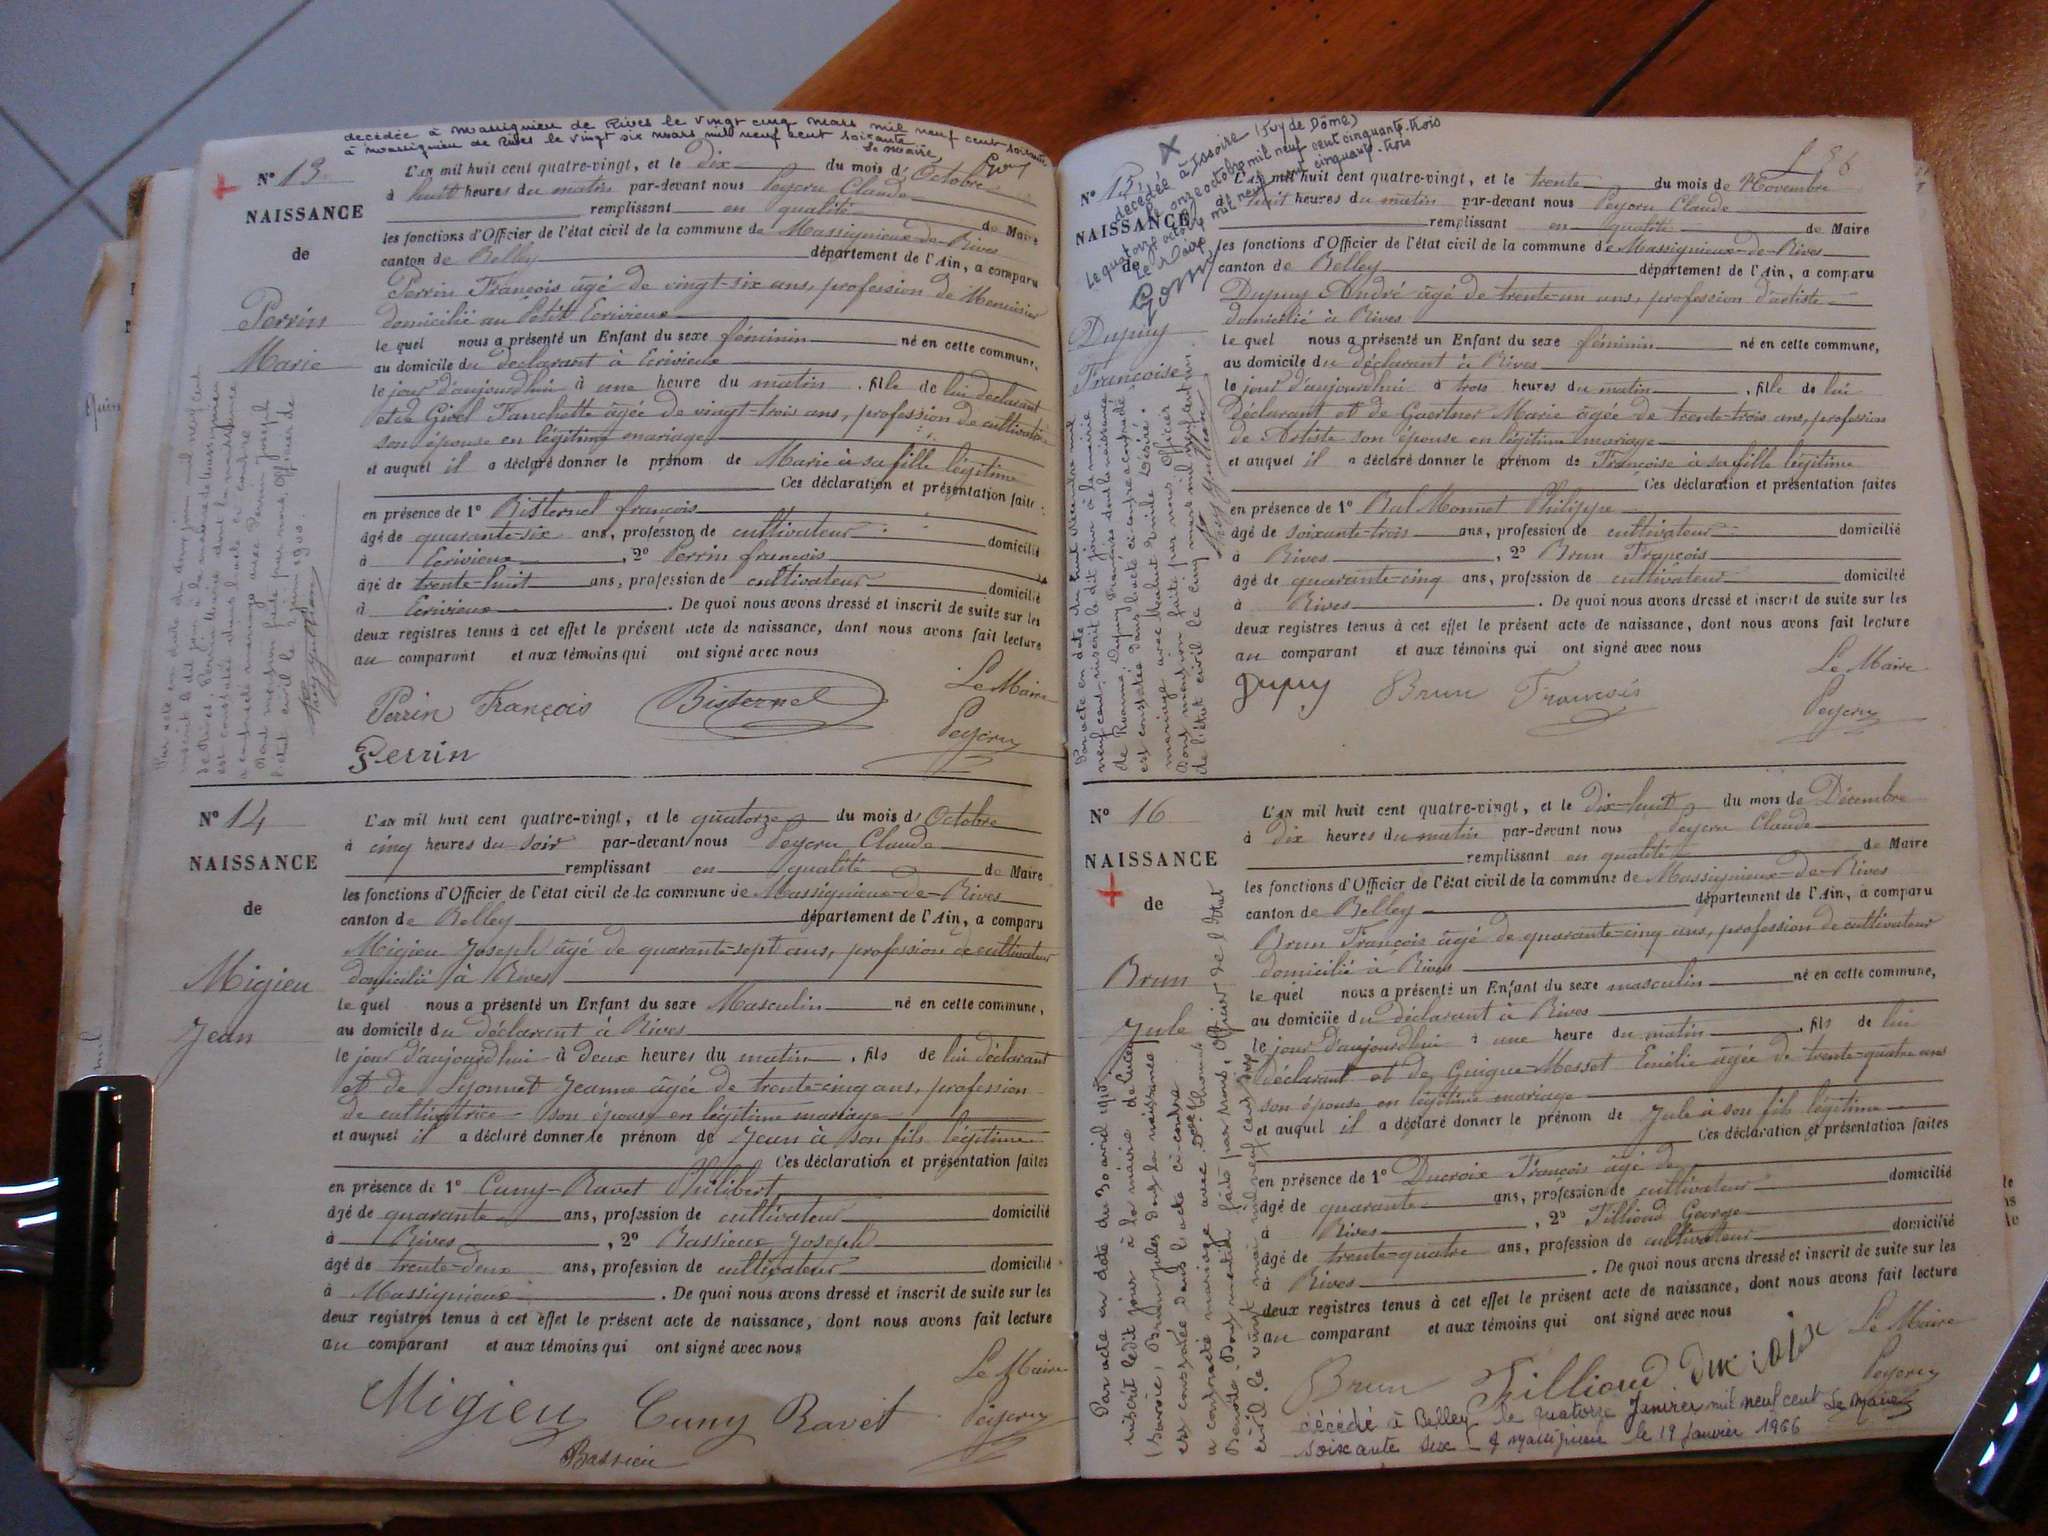 décédée à Massignieu de Rives le vingt cinq mars mil neuf cent soixante
à Massignieu de Rives le vingt six mars mil neuf cent soixante
Le Maire,
N° 13
NAISSANCE
de
Perrin
Marie
L'AN mil huit cent quatre-vingt, et le dix du mois d'Octobre
à huit heures du matin par-devant nous Peycru Claude
remplissant en qualité de Maire
les fonctions d'Officier de l'état civil de la commune de Massignieux-de-Rives
canton de Belley département de l'Ain, a comparu
Perrin François âgé de vingt-six ans, profession de Menuisier
domicilié au Petit Ecrivieux
le quel nous a présenté un Enfant du sexe féminin né en cette commune,
au domicile du déclarant à Ecrivieux
le jour d'aujourd'hui à une heure du matin, fille de lui déclarant
et de Givel Fanchette âgée de vingt-trois ans, profession de cultivatrice
son épouse en légitime mariage
et auquel il a déclaré donner le prénom de Marie à sa fille légitime
Ces déclaration et présentation faites
en présence de 1° Bisternel françois
âgé de quarante-six ans, profession de cultivateur domicilié
à Ecrivieux, 2° Perrin françois
âgé de trente-huit ans, profession de cultivateur domicilié
à Ecrivieux. De quoi nous avons dressé et inscrit de suite sur les
deux registres tenus à cet effet le présent acte de naissance, dont nous avons fait lecture
au comparant et aux témoins qui ont signé avec nous
Le Maire
Perrin François Bisternel
Peycru
Perrin
Par acte en date du deux juin mil neuf cent
inscrit le dit jour à la mairie de Massignieu
de Rives Perrin Marie dont la naissance
est constatée dans l'acte ci contre
a contracté mariage avec Perrin Joseph
Dont mention faite par nous, Officier de
l'état civil le 2 juin 1900.
N° 14
NAISSANCE
de
Migieu
Jean
L'AN mil huit cent quatre-vingt, et le quatorze du mois d'Octobre
à cinq heures du soir par-devant nous Peycru Claude
remplissant en qualité de Maire
les fonctions d'Officier de l'état civil de la commune de Massignieux-de-Rives
canton de Belley département de l'Ain, a comparu
Migieu Joseph âgé de quarante-sept ans, profession de cultivateur
domicilié à Rives
le quel nous a présenté un Enfant du sexe Masculin né en cette commune,
au domicile du déclarant à Rives
le jour d'aujourd'hui à deux heures du matin, fils de lui déclarant
et de Lyonnet Jeanne âgée de trente-cinq ans, profession
de cultivatrice son épouse en légitime mariage
et auquel il a déclaré donner le prénom de Jean à son fils légitime
Ces déclaration et présentation faites
en présence de 1° Cuny-Ravet Philibert
âgé de quarante ans, profession de cultivateur domicilié
à Rives, 2° Bassieux Joseph
âgé de trente-deux ans, profession de cultivateur domicilié
à Massignieux. De quoi nous avons dressé et inscrit de suite sur les
deux registres tenus à cet effet le présent acte de naissance, dont nous avons fait lecture
au comparant et aux témoins qui ont signé avec nous
Le Maire
Migieu Cuny Ravet Peycru
Bassieu
décédée à Issoire (Puy de Dôme)
le onze octobre mil neuf cent cinquante-trois
Le quatorze octobre mil neuf cent cinquante-trois
Le Maire
N° 15
NAISSANCE
de
Dupuy
Françoise
L'AN mil huit cent quatre-vingt, et le trente du mois de Novembre
à huit heures du matin par-devant nous Peycru Claude
remplissant en qualité de Maire
les fonctions d'Officier de l'état civil de la commune de Massignieux-de-Rives
canton de Belley département de l'Ain, a comparu
Dupuy André âgé de trente-un ans, profession d'artiste
domicilié à Rives
le quel nous a présenté un Enfant du sexe féminin né en cette commune,
au domicile du déclarant à Rives
le jour d'aujourd'hui à trois heures du matin, fille de lui
déclarant et de Gaertner Marie âgée de trente-trois ans, profession
de Artiste son épouse en légitime mariage
et auquel il a déclaré donner le prénom de Françoise à sa fille légitime
Ces déclaration et présentation faites
en présence de 1° Bal Monnet Philippe
âgé de soixante-trois ans, profession de cultivateur domicilié
à Rives, 2° Brun François
âgé de quarante-cinq ans, profession de cultivateur domicilié
à Rives. De quoi nous avons dressé et inscrit de suite sur les
deux registres tenus à cet effet le présent acte de naissance, dont nous avons fait lecture
au comparant et aux témoins qui ont signé avec nous
Le Maire
Dupuy Brun François Peycru
Par acte en date du huit décembre mil
neuf cent, inscrit le dit jour à la mairie
de Roanne, Dupuy Françoise dont la naissance
est constatée dans l'acte ci-contre a contracté
mariage avec
Dont mention faite par nous Officier
de l'état civil le cinq mars mil neuf cent un.
N° 16
NAISSANCE
de
Brun
Jule
L'AN mil huit cent quatre-vingt, et le dix-huit du mois de Décembre
à dix heures du matin par-devant nous Peycru Claude
remplissant en qualité de Maire
les fonctions d'Officier de l'état civil de la commune de Massignieux-de-Rives
canton de Belley département de l'Ain, a comparu
Brun François âgé de quarante-cinq ans, profession de cultivateur
domicilié à Rives
le quel nous a présenté un Enfant du sexe masculin né en cette commune,
au domicile du déclarant à Rives
le jour d'aujourd'hui à une heure du matin, fils de lui
déclarant et de Guigue-Messet Emélie âgée de trente-quatre ans
son épouse en légitime mariage
et auquel il a déclaré donner le prénom de Jule à son fils légitime
Ces déclaration et présentation faites
en présence de 1° Ducroix François âgé de
âgé de quarante ans, profession de cultivateur domicilié
à Rives, 2° Tilliond George
âgé de trente-quatre ans, profession de cultivateur domicilié
à Rives. De quoi nous avons dressé et inscrit de suite sur les
deux registres tenus à cet effet le présent acte de naissance, dont nous avons fait lecture
au comparant et aux témoins qui ont signé avec nous
Le Maire
Brun Tilliond Ducroix Peycru
décédé à Belley le quatorze Janvier mil neuf cent
soixante six à Massignieu le 19 janvier 1966
Le Maire
Par acte en date du 30 avril
inscrit ledit jour à la mairie de Lucey
(Savoie), Brun Jules dont la naissance
est constatée dans l'acte ci-contre
a contracté mariage avec
Dont mention faite par nous, Officier de l'état
civil, le vingt mai mil neuf cent dix